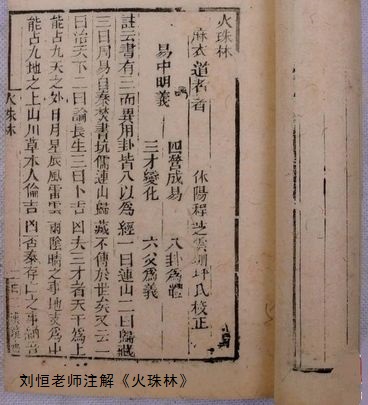 火珠林
麻衣道者著 休陽程芝雲瑚坪氏校正
易中明義 四營成易 八卦為體
三才變化 六爻為義
註云書有三而異用卦皆八以為經一曰連山二曰歸藏
三曰周易自秦焚書坑儒連山歸藏不傳於世矣又云一
曰治天下二曰論長生三曰卜吉凶夫三才者天為上
能占九天之外日月星辰風雷雲雨陰晴之事地支為中
能占九地之上山川草木人倫吉凶否泰存亡之事納音
火珠林
刘恒老师注解《火珠林》